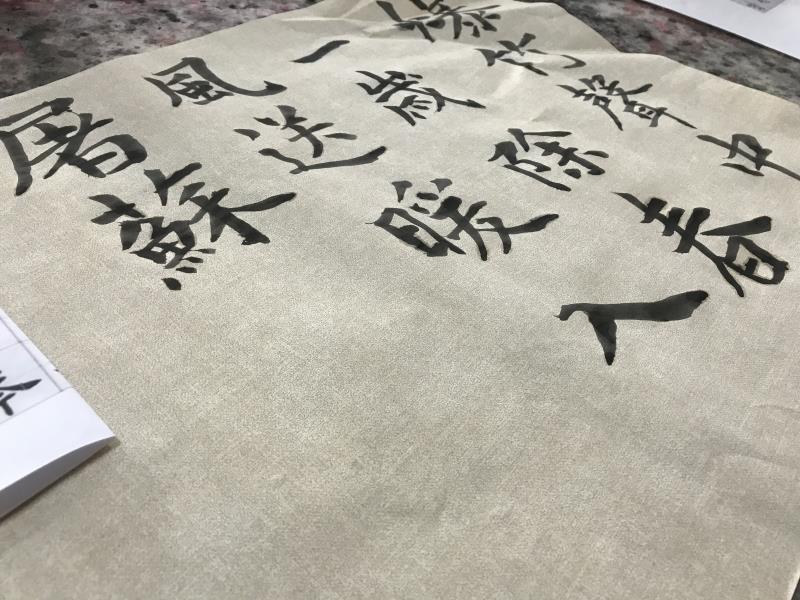 爆竹聲中
一歲除春
風送暖入
屠蘇